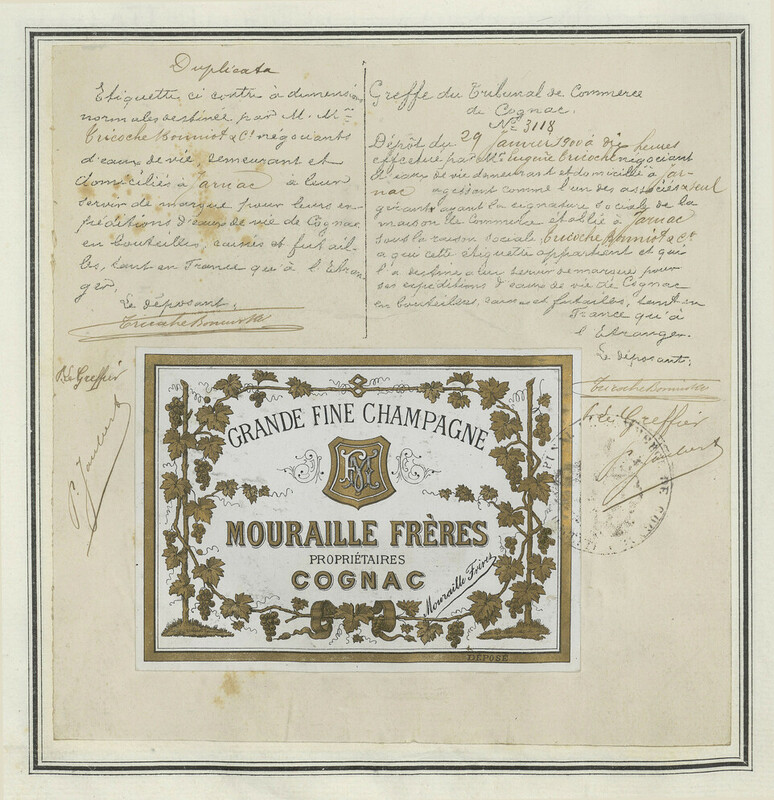 Duplicata
Etiquette ci contre à dimensions
normales destinée par M. Mrs
Tricoche Bonniot & Cie négociants
d'eaux de vie, demeurant et
domiciliés à Jarnac à leur
servir de marque pour leurs ex-
péditions d'eaux de vie de Cognac
en bouteilles, caisses et futail-
les, tant en France qu'à l'Etran-
ger.
Le déposant,
Tricoche Bonniot & Cie
P. Le Greffier
P. Joubert
Greffe du Tribunal de Commerce
de Cognac.
No 3118
Dépôt du 29 Janvier 1900 à dix heures
effectué par Mr Eugène Tricoche négociant
d'eaux de vie demeurant et domicilié à Jar-
nac agissant comme l'un des associés & seul
gérant ayant la signature sociale de la
maison de Commerce établie à Jarnac
sous la raison sociale Tricoche Bonniot & Cie
a qui cette étiquette appartient et qui
l'a destine a lui servir de marque pour
ses expéditions d'eaux de vie de Cognac
en bouteilles, caisses et futailles, tant en
France qu'à
l'Etranger.
Le déposant,
Tricoche Bonniot & Cie
P. Le Greffier
P. Joubert
GRANDE FINE CHAMPAGNE
MOURAILLE FRÈRES
PROPRIÉTAIRES
COGNAC
Mouraille Frères
DÉPOSÉ